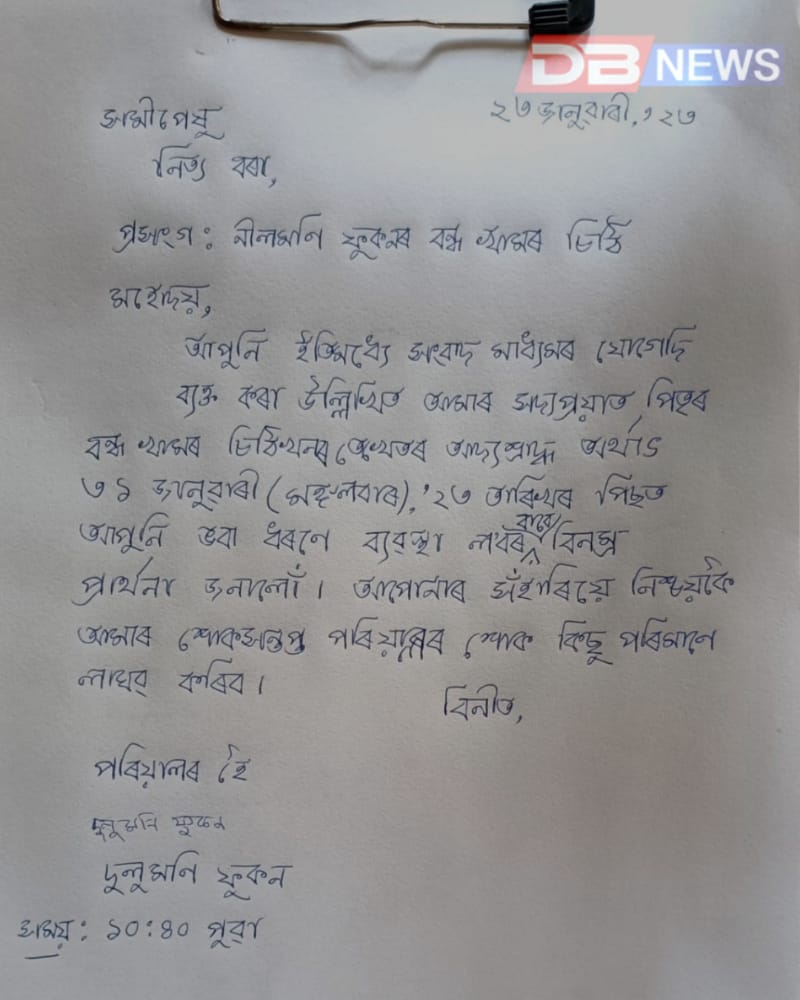 DB NEWS
২৩ জানুৱাৰী, '২৩
সমীপেষু
নিত্য বৰা,
প্ৰসংগ: নীলমণি ফুকনৰ বন্ধ খামৰ চিঠি
মহোদয়,
আপুনি ইতিমধ্যে সংবাদ মাধ্যমৰ যোগেদি
ব্যক্ত কৰা উল্লিখিত আমাৰ সদ্যপ্ৰয়াত পিতৃৰ
বন্ধ খামৰ চিঠিখনৰ তেখেতৰ আদ্যশ্ৰাদ্ধ অৰ্থাৎ
৩১ জানুৱাৰী (মঙ্গলবাৰ), '২৩ তাৰিখৰ পিছত
আপুনি ভবা ধৰণে ব্যৱস্থা ল'বৰ বাবে বিনম্ৰ
প্ৰাৰ্থনা জনালোঁ। আপোনাৰ সঁহাৰিয়ে নিশ্চয়কৈ
আমাৰ শোকসন্তপ্ত পৰিয়ালৰ শোক কিছু পৰিমাণে
লাঘৱ কৰিব।
বিনীত,
পৰিয়ালৰ হৈ
দুলুমণি ফুকন
দুলুমণি ফুকন
সময়: ১০:৪০ পুৱা